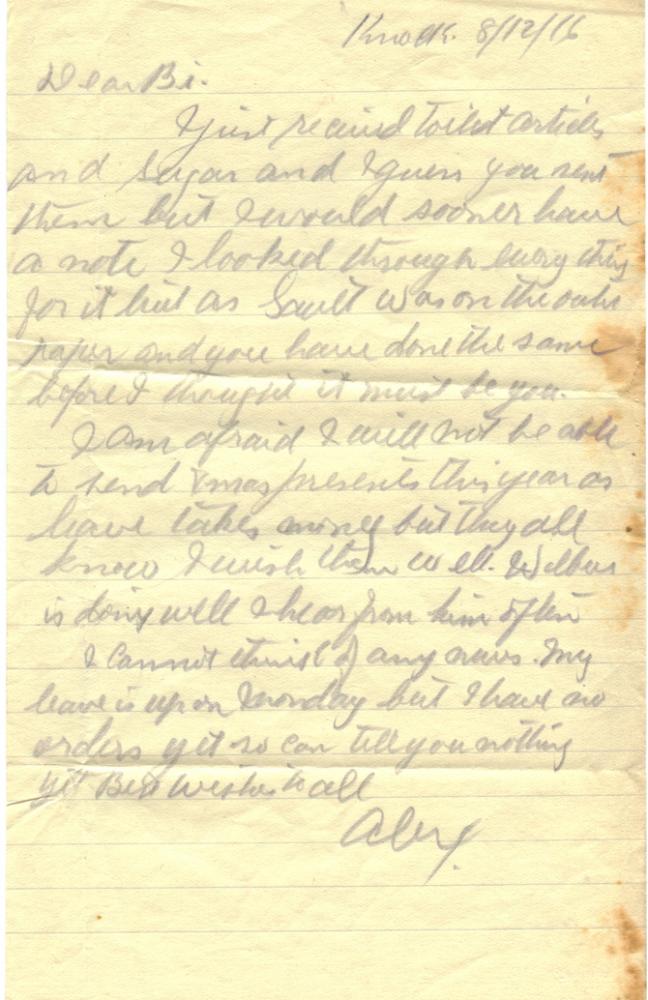 Knock. 8/12/16
Dear Bi.
I just received toilet articles
and sugar and I guess you sent
them but I would sooner have
a note I looked through every thing
for it but as Sault was on the outer
paper and you have done the same
before I thought it must be you.
I am afraid I will not be able
to send Xmas presents this year as
leave takes money but they all
know I wish them well. Wilbur
is doing well I hear from him often
I cannot think of any news. My
leave is up on Monday but I have no
orders yet so can tell you nothing
yet Best wishes to all
Alex.